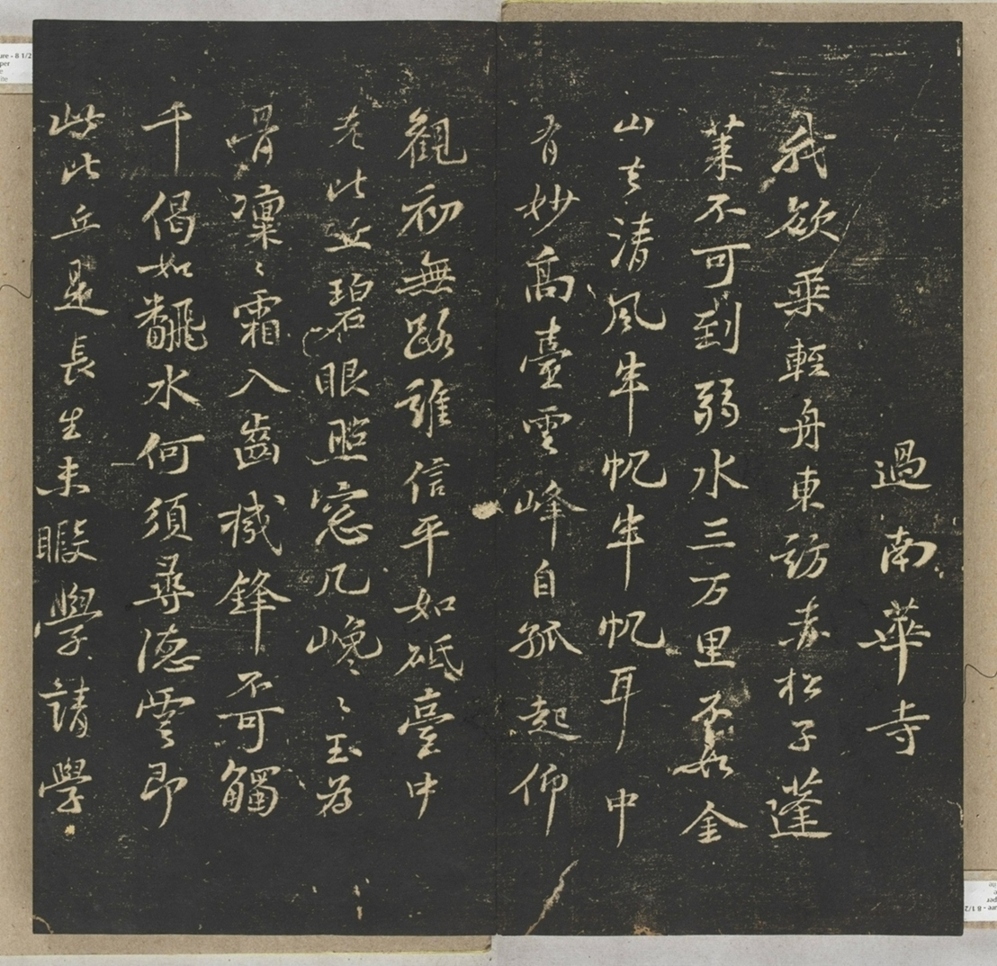 過南華寺
我欲乘輕舟東訪赤松子蓬
萊不可到弱水三万里不如金
山去清風半帆半帆耳中
有妙高臺雲峰自孤起仰
觀初無路誰信平如砥臺中
老比丘碧眼照窓几巉〻玉為
骨凜〻霜入齒機鋒不可觸
千偈如飜水何須尋德雲即
此比丘是長生未暇學請學